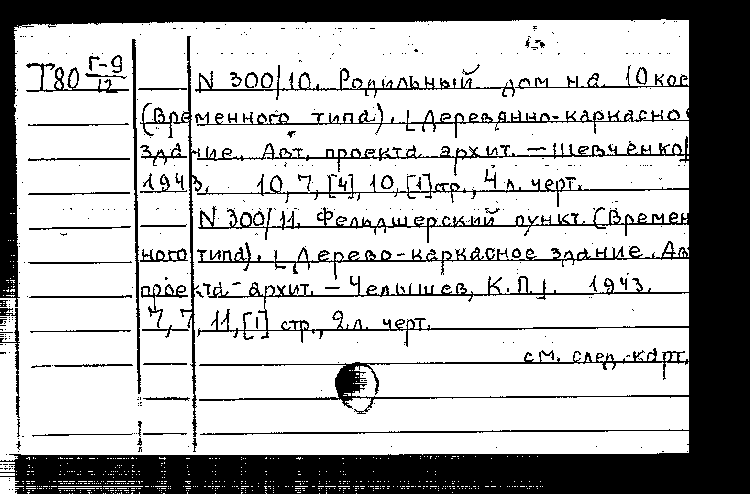 Т80 Г-9/12
N 300/10. Родильный дом на 10 кое
(временного типа). [Деревянно-каркасное
здание. Авт. проекта архит. — Шевченко]
1943. 10, 7, [4], 10, [1] стр., 4 л. черт.
N 300/11. Фельдшерский пункт. (Времен
ного типа). [Дерево-каркасное здание. Ав
проекта - архит. — Челышев, К.П.]. 1943.
7, 7, 11, [1] стр., 2 л. черт.
см. след. карт.